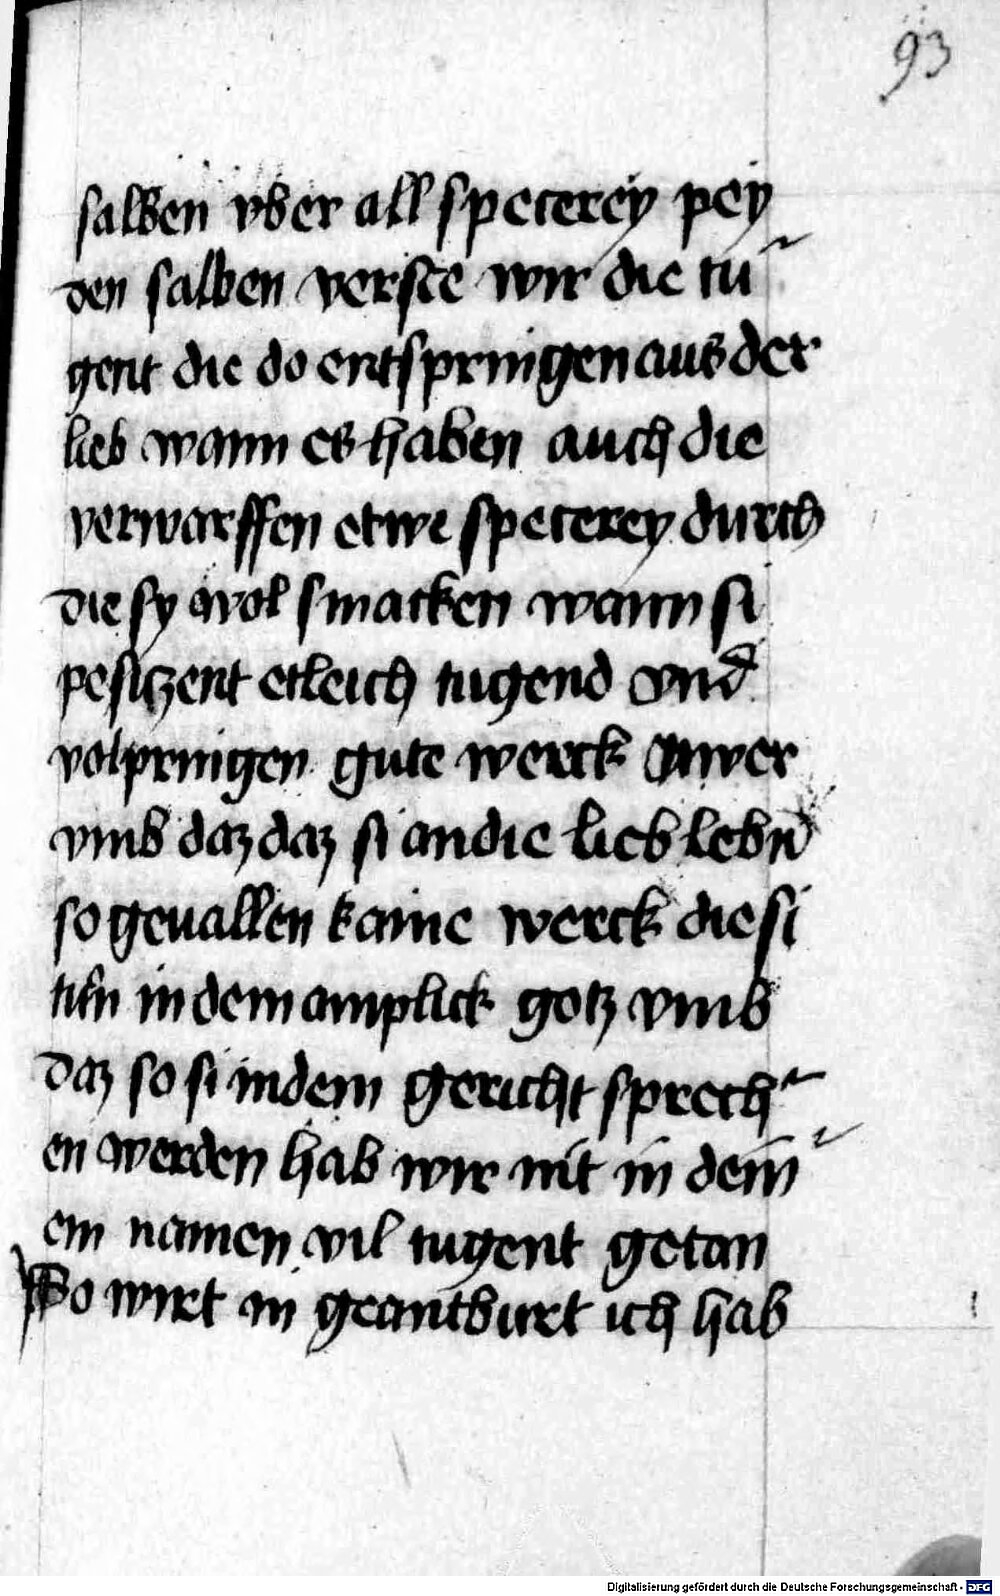 93
salben vber all specerey pey
den salben verste wir die tu
gent die do entspringen aus der
lieb wann es haben auch die
verworffen etwe specerey durch
die sy wol smacken wann si
pesitzent etleich tugend vnd
volpringen gute werck
vmb daz daz si an die lieb lebn̄
so geuallen kaine werck die si
tun in dem amplick gotz vmb
daz so si in dem gericht sprech
en werden hab wir nit in dein
em namen vil tugent getan
So wirt in geantburt ich hab
Digitalisierung gefördert durch die Deutsche Forschungsgemeinschaft - DFG